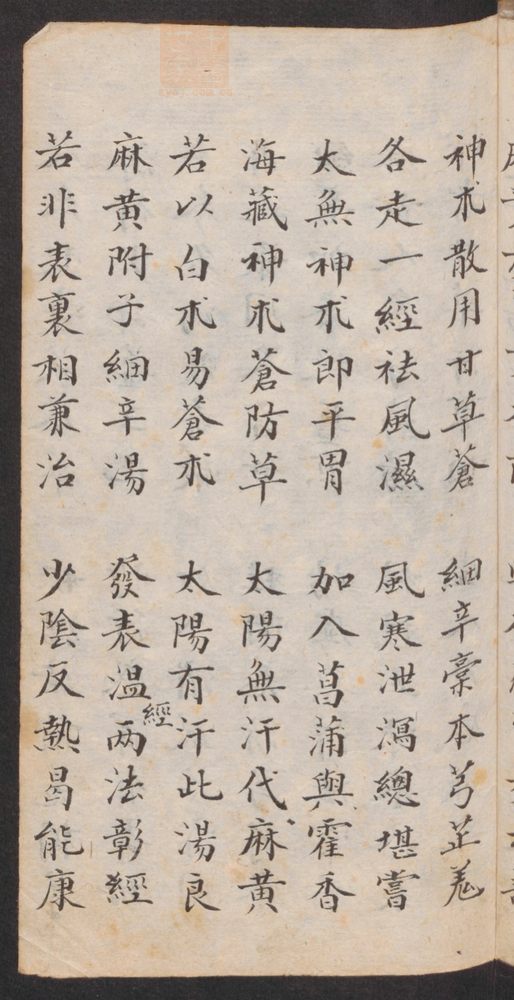 神朮散用甘草蒼 細辛藁本芎芷羌
各走一經祛風濕 風寒泄瀉總堪嘗
太無神朮即平胃 加入菖蒲與霍香
海藏神朮蒼防草 太陽無汗代麻黃
若以白朮易蒼朮 太陽有汗此湯良
麻黃附子細辛湯 發表溫經两法彰經
若非表裏相兼治 少陰反熱曷能康